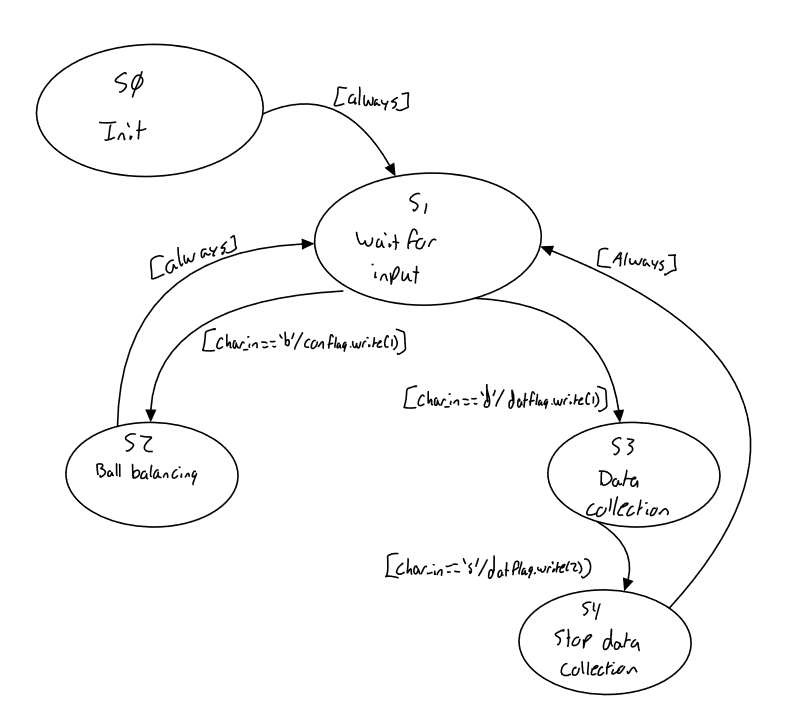 S0
Init
[always]
S1
wait for
input
[always]
[Always]
[char_in=='b'/conflag.write(1)]
[char_in=='d'/datflag.write(1)]
S2
Ball balancing
S3
Data
collection
[char_in=='s'/datflag.write(2)]
S4
Stop data
collection